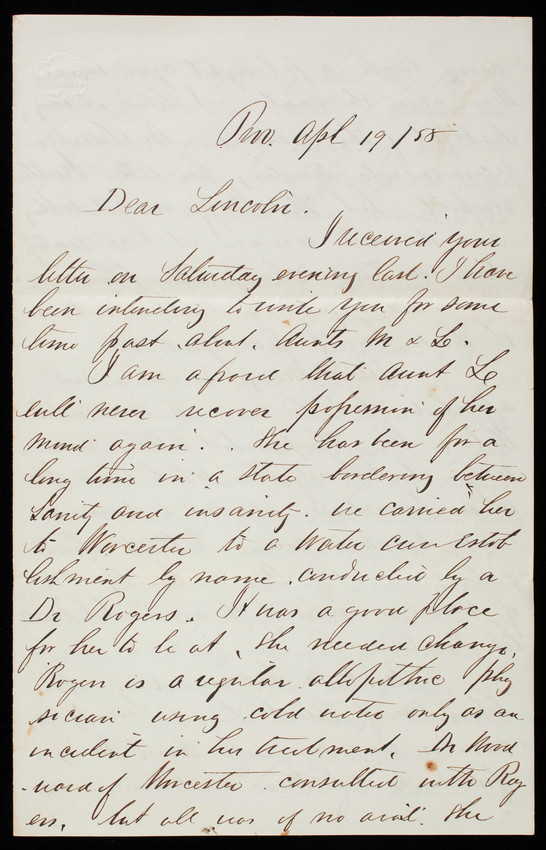 Prov. Apl 19 / 58
Dear Lincoln.
I received your
letter on Saturday evening last. I have
been intending to write you for some
time past about Aunts M & L.
I am afraid that Aunt L
will never recover possession of her
mind again. She has been for a
long time in a state bordering between
sanity and insanity. We carried her
to Worcester to a Water cure Estab
lishment by name conducted by a
Dr Rogers. It was a good place
for her to be at, she needed change.
Rogers is a regular allopathic phy
sician using cold water only as an
incident in his treatment. Dr Wood
-ward of Worcester consulted with Rog
ers, but all was of no avail. She